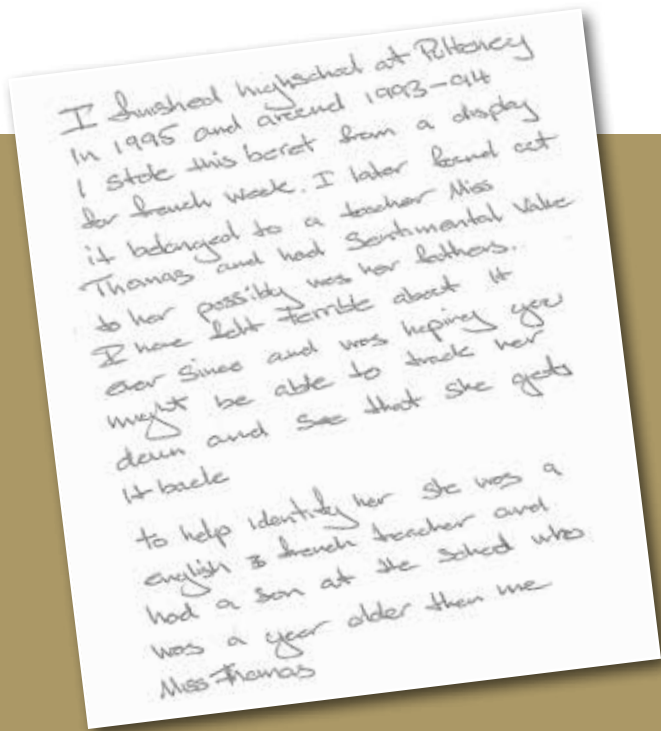 I finished highschool at Pulteney
In 1995 and around 1993-94
I stole this beret from a display
for french week. I later found out
it belonged to a teacher Miss
Thomas and had Sentimental Value
to her possibly was her fathers.
I have felt terrible about it
ever since and was hoping you
might be able to track her
down and see that she gets
it back
to help identify her she was a
english & french teacher and
had a son at the school who
was a year older than me
Miss Thomas